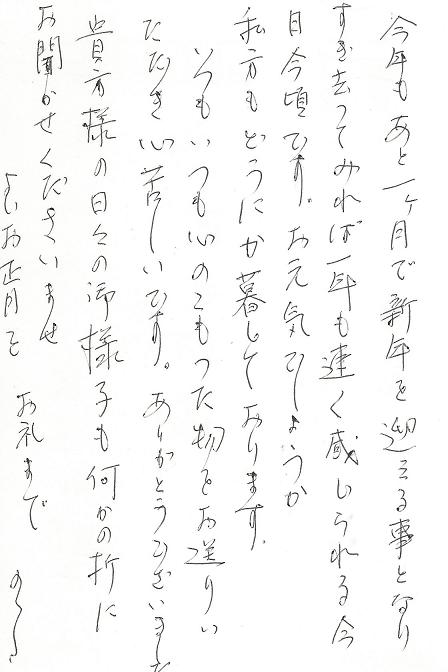 今年もあと一ヶ月で新年を迎える事となり
すぎ去ってみれば一年も速く感じられる今
日今頃です。お元気でしょうか
私方もどうにか暮しております。
いつもいつも心のこもった物をお送りい
ただき心苦しいです。ありがとうございました
貴方様の日々の御様子も何かの折に
お聞かせくださいませ
よいお正月を
お礼まで